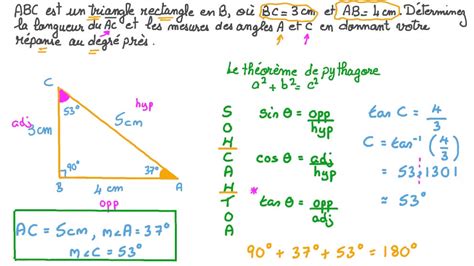 ABC est un triangle rectangle en B, où BC = 3 cm et AB = 4 cm. Déterminez
la longueur du AC et les mesures des angles A et C en donnant votre
réponse au dégré près.
Le théorème de pythagore
a² + b² = c²
C
53°
hyp
adj
3cm
5cm
90°
37°
B
4 cm
A
opp
AC = 5cm, m∠A = 37°
m∠C = 53°
S
O
H
C
A
H
T
O
A
sin θ = opp/hyp
cos θ = adj/hyp
* tan θ = opp/adj
tan C = 4/3
C = tan⁻¹ (4/3)
= 53,1301
≈ 53°
90° + 37° + 53° = 180°